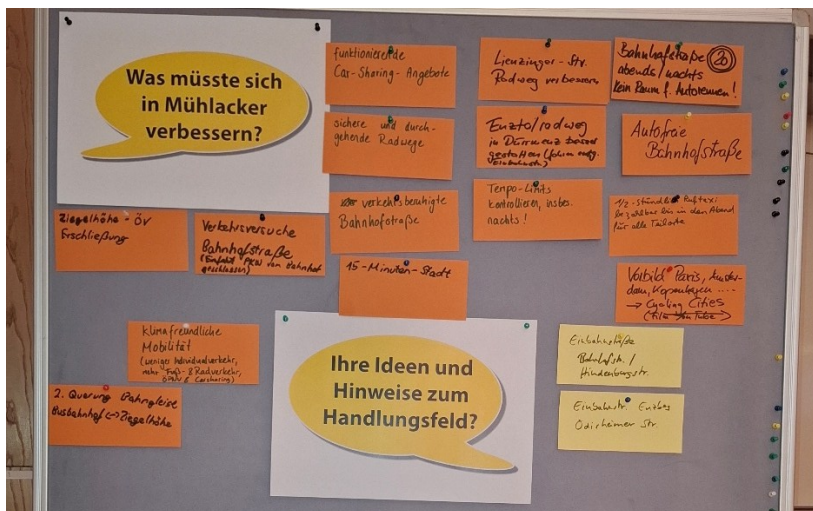 Was müsste sich
in Mühlacker
verbessern?
funktionierende
Car-Sharing-Angebote
Lienzinger-Str.
Radweg verbessern
Bahnhofstraße
abends/nachts
kein Raum f. Autorennen!
20
sichere und durch-
gehende Radwege
Enztalradweg
in Dürrmenz besser
gestalten
Autofreie
Bahnhofstraße
verkehrsberuhigte
Bahnhofstraße
Tempo-Limits
kontrollieren, insbes.
nachts!
1/2-stündlich Ruftaxi
bezahlbar bis in den Abend
für alle Teilorte
Ziegelhöhe - ÖV
Erschließung
Verkehrsversuche
Bahnhofstraße
(Einfahrt PKW vom Bahnhof
geschlossen)
15-Minuten-Stadt
Vorbild Paris, Amster-
dam, Kopenhagen ....
→ Cycling Cities
klimafreundliche
Mobilität
(weniger Individualverkehr,
mehr Fuß- & Radverkehr,
ÖPNV & Carsharing)
Ihre Ideen und
Hinweise zum
Handlungsfeld?
Einbahnstraße
Bahnhofstr. /
Hindenburgstr.
2. Querung Bahngleise
Busbahnhof ↔ Ziegelhöhe
Einbahnstr.